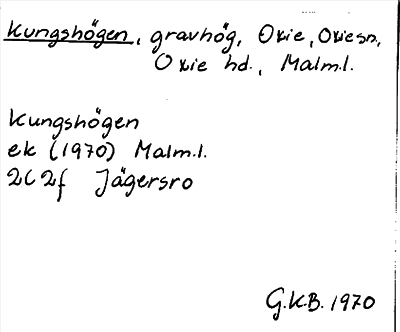 Kungshögen, gravhög, Oxie, Oxiesn,
Oxie hd., Malm.l.
Kungshögen
ek (1970) Malm.l.
2C2f Jägersro
G.K.B. 1970